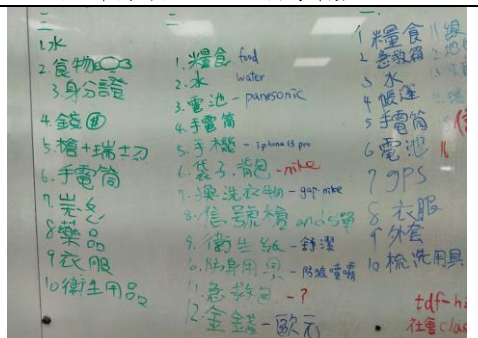 三
1.水
2.食物
3身分證
4.錢
5.槍+瑞士刀
6.手電筒
7.
8藥品
9衣服
10衛生用品
二
1.糧食 food
2.水 water
3.電池 - panasonic
4.手電筒
5.手機 - iphone 13 pro
6.袋子.背包 - nike
7.換洗衣物 - gap.nike
8.信號槍
9.衛生紙 - 舒潔
10.防身用具 - 防狼噴霧
11.急救包 - ?
12.金錢 - 歐元
一
1 糧食
2 急救箱
3 水
4 帳篷
5 手電筒
6 電池
7 GPS
8 衣服
9 外套
10 梳洗用具
tdf-h
社會clas